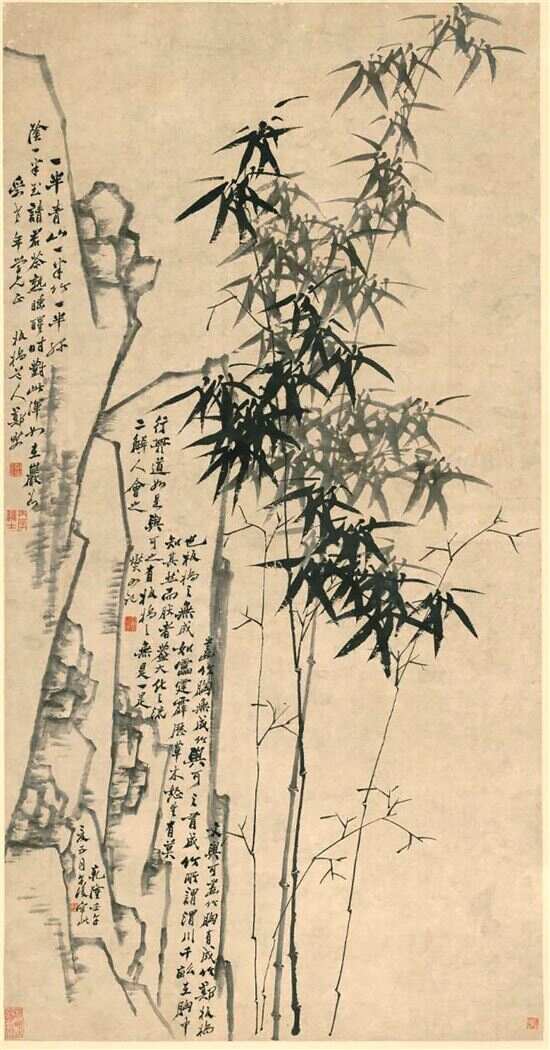 一半青山一半竹一半綠
陰一半玉請君茶熟睡醒時對此渾如在巖谷
年學兄正 板橋老人鄭燮
文與可畫竹胸有成竹鄭板橋
畫竹胸無成竹與可之有成竹所謂渭川千畝在胸中
也板橋之無成如雷霆霹靂草木怒生有莫
知其然而然者蓋大化之流
行其道如是與可之有板橋之無是一是
二解人會之
燮又記
乾隆壬午